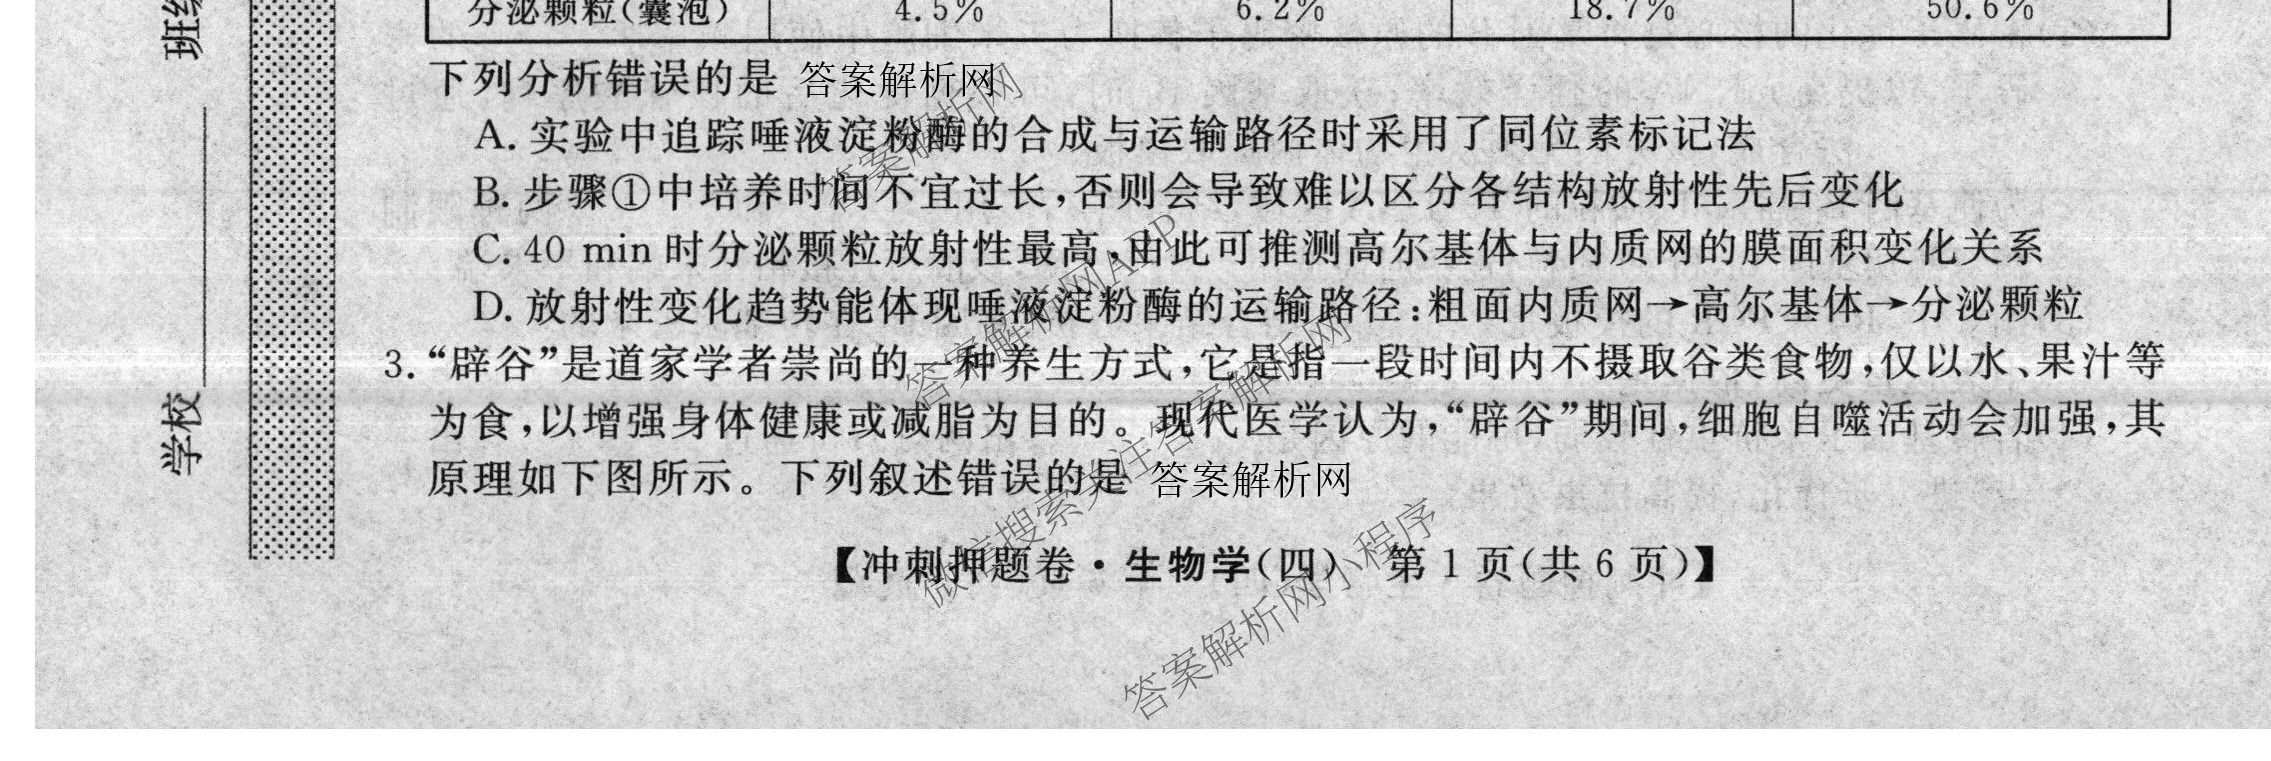 分泌颗粒(囊泡) 4.5% 6.2% 18.7% 50.6%
下列分析错误的是 答案解析网
A. 实验中追踪唾液淀粉酶的合成与运输路径时采用了同位素标记法
B. 步骤①中培养时间不宜过长,否则会导致难以区分各结构放射性先后变化
C. 40 min 时分泌颗粒放射性最高,由此可推测高尔基体与内质网的膜面积变化关系
D. 放射性变化趋势能体现唾液淀粉酶的运输路径:粗面内质网→高尔基体→分泌颗粒
3. “辟谷”是道家学者崇尚的一种养生方式,它是指一段时间内不摄取谷类食物,仅以水、果汁等
为食,以增强身体健康或减脂为目的。现代医学认为,“辟谷”期间,细胞自噬活动会加强,其
原理如下图所示。下列叙述错误的是 答案解析网
【冲刺押题卷·生物学(四) 第 1 页(共 6 页)】
学校
答案解析网
答案解析网APP
微信搜索关注答案解析网
答案解析网小程序